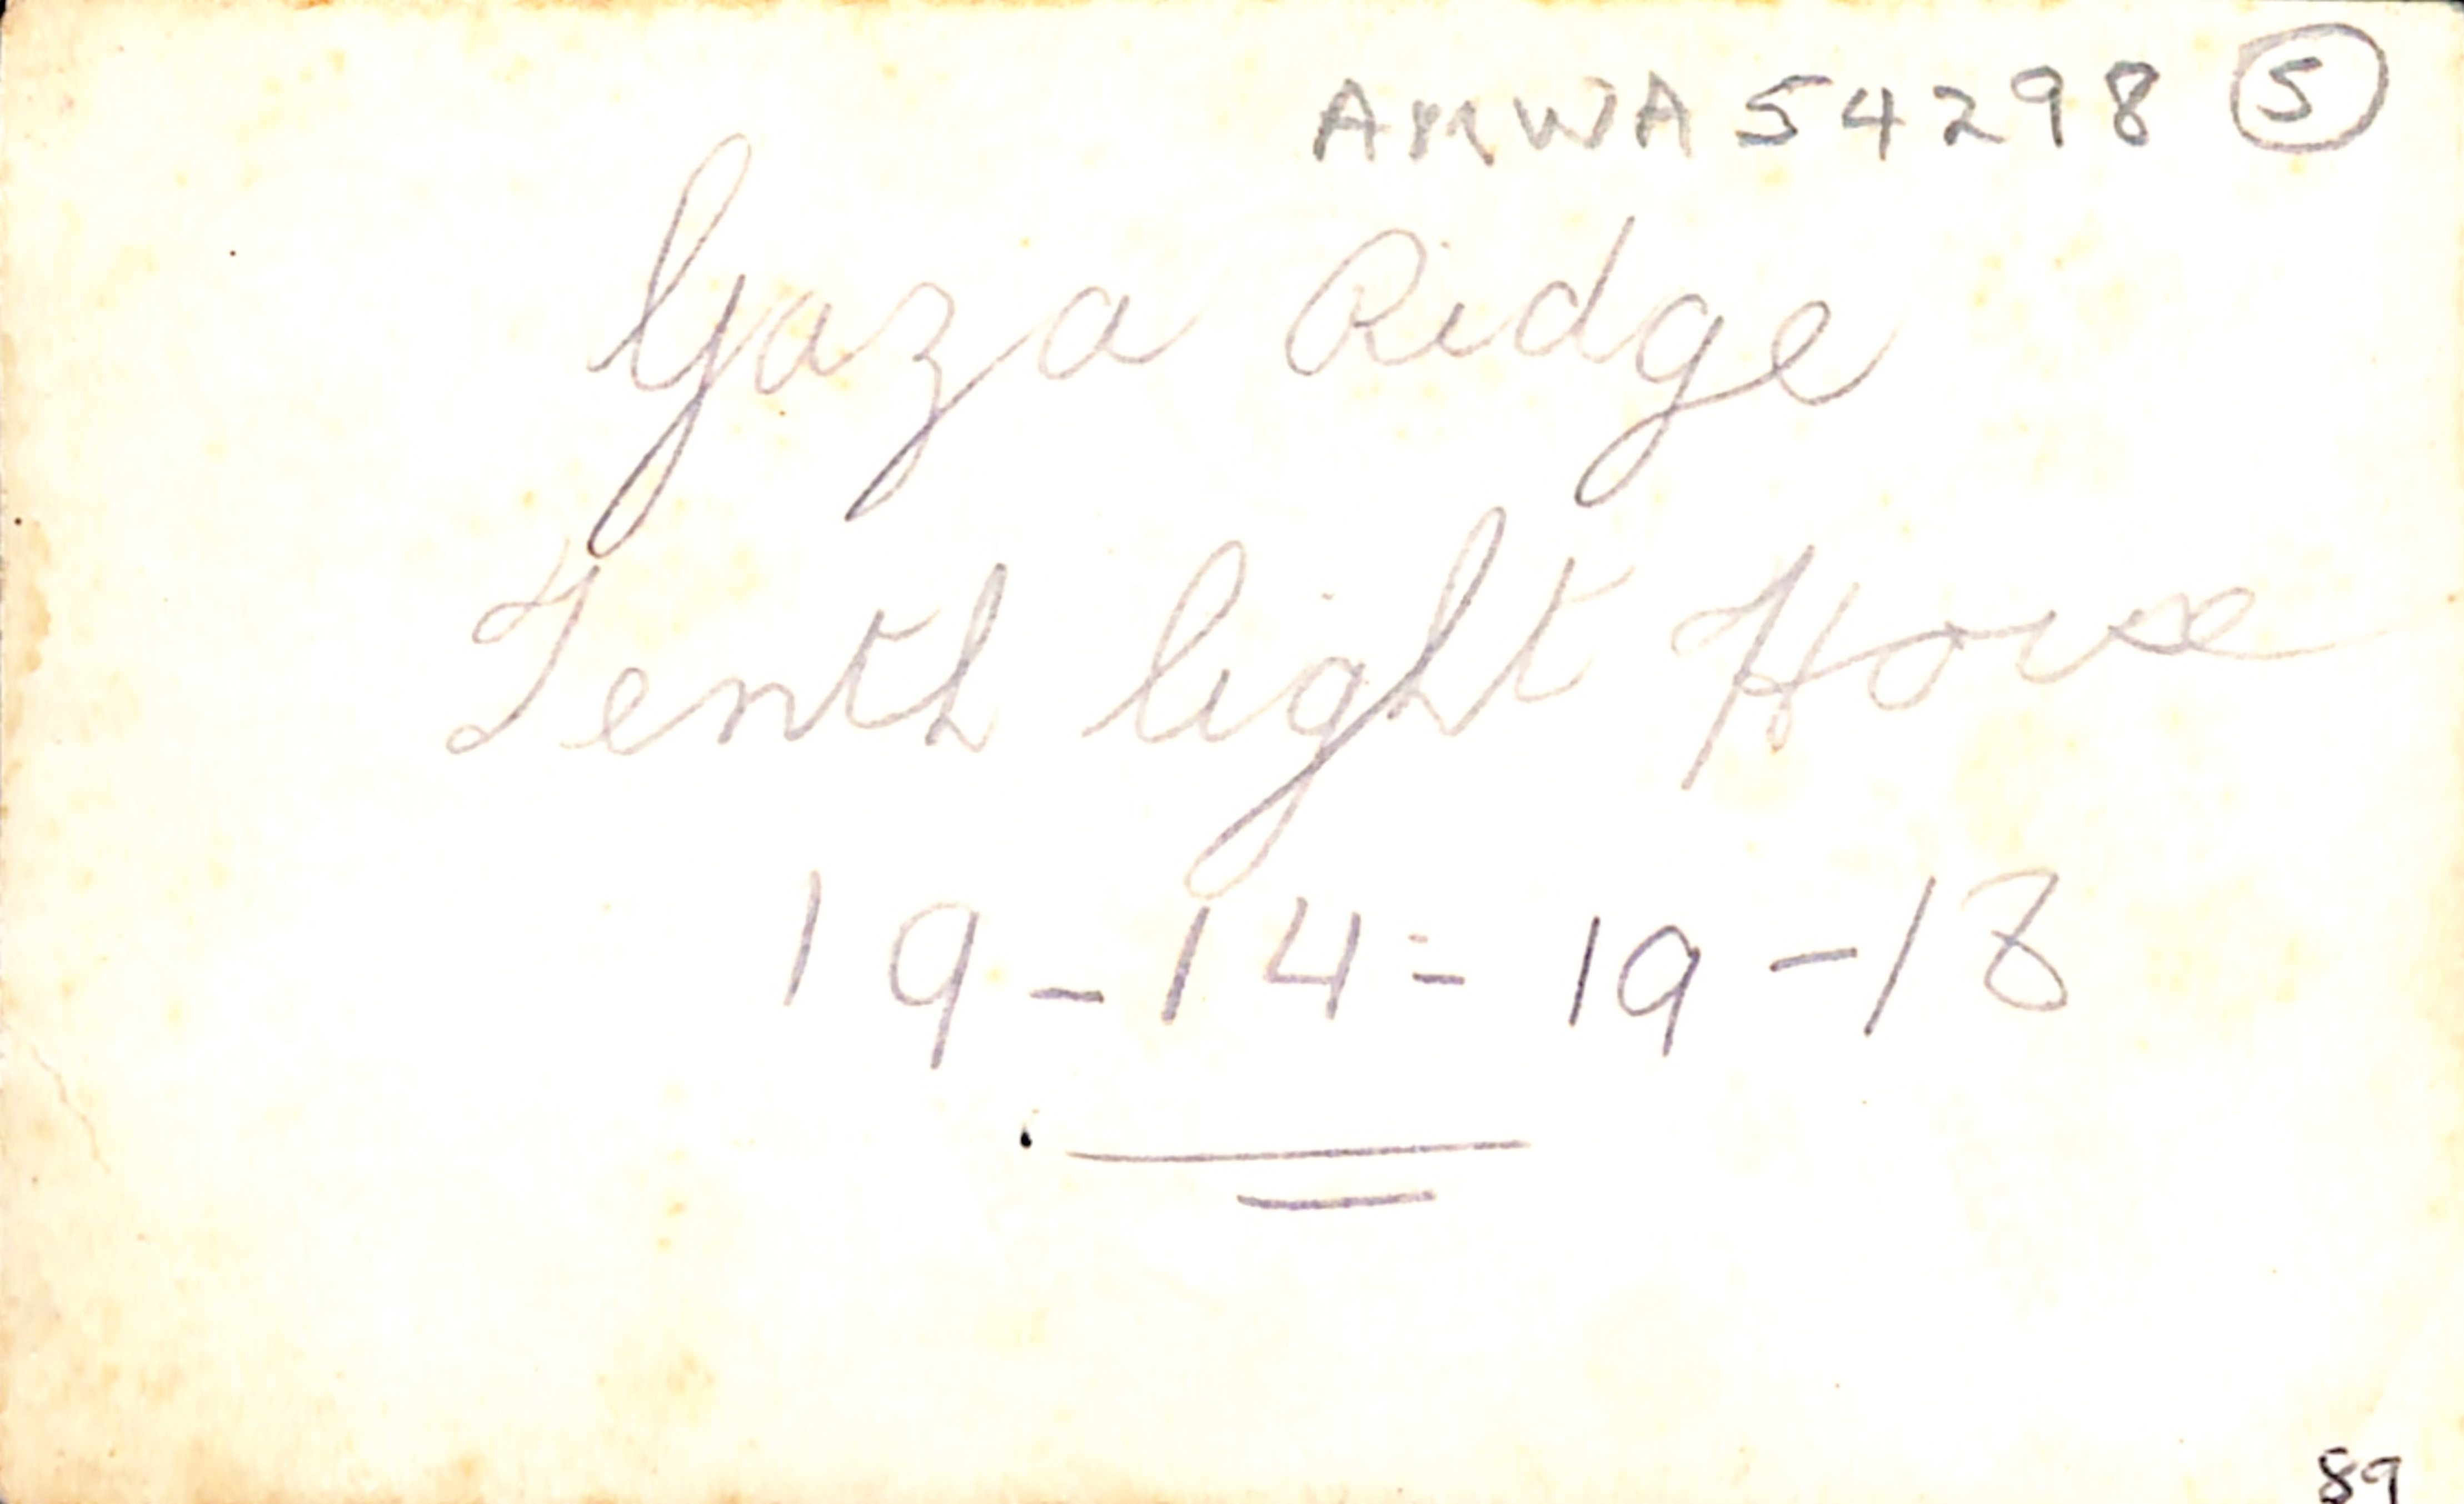 AMWA 54298 5
Gaza Ridge
Tenth light Horse
19-14=19-18
89